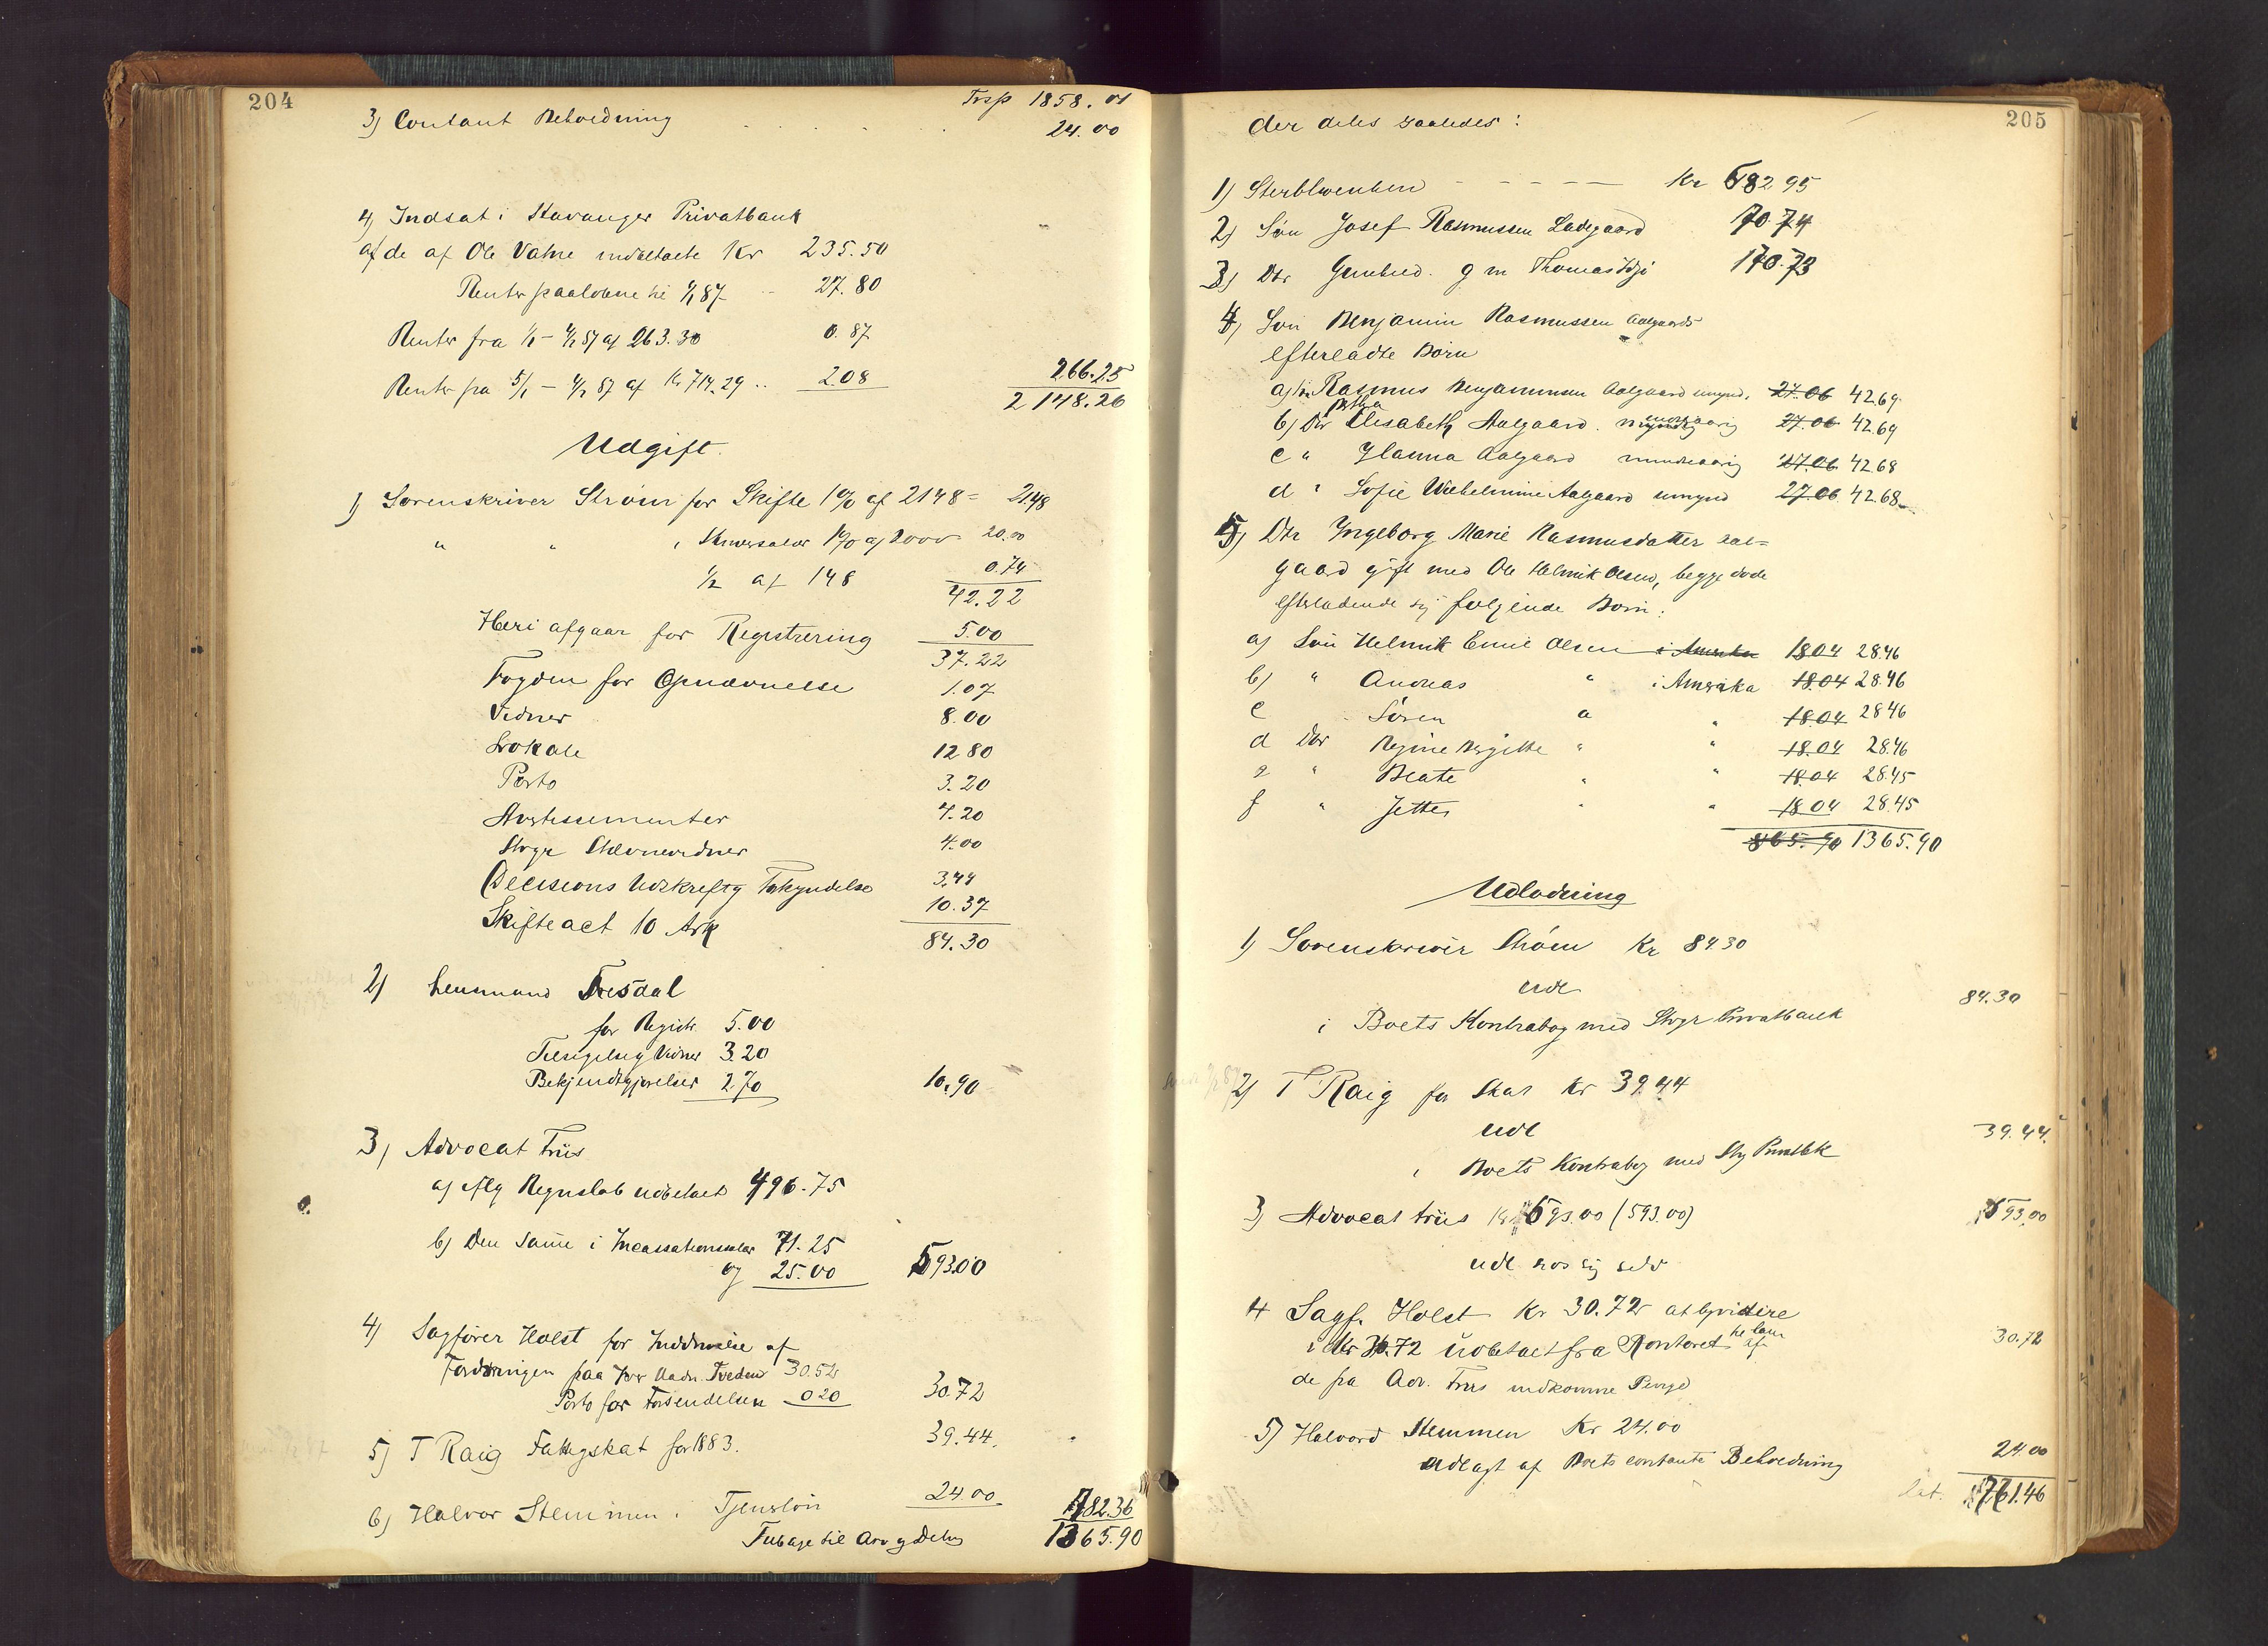 204
Trsp 1858.01
3) Contant Beholdning . . . . 24.00
4) Indsat i Stavanger Privatbank
af de af Ole Vatne indbetalte Kr 235.50
Renter paaløbne til 1/1 87 27.80
Renter fra 1/1 - 4/2 87 af 263.30 0.87
Renter fra 5/1 - 4/2 87 af Kr 714.29 .. 2.08 266.25
2148.26
Udgift.
1) Sorenskriver Strøm for Skifte 1% af 2148 = 21.48
" " " 1% af 2000 20.00
1/2 af 148 0.74
42.22
Heri afgaar for Registrering 5.00
37.22
Fogden for Opnævnelse 1.07
Vidner 8.00
Lokale 12 80
Porto 3.20
Avertissementer 4.20
Stvgr Stævnevidner 4.00
Decisions Udskrift og Forkyndelse 3.44
Skifteact 10 Ark 10.37
84.30
2) Lensmand Tresdal
for Registr. 5.00
Tilsigelse af Vidner 3.20
Bekjendtgjørelser 2.70 10.90
3) Advocat Triis
a) iflg Regnskab udbetalt 496.75
b) Den samme i Incassationssalær 71.25
og 25.00 593.00
4) Sagfører Holst for Inddrivelse af
Fordringen paa Tveden 30.52
Porto for Forsendelsen 0 20 30.72
5) T Raig Fattigskat for 1883. 39.44.
6) Halvor Stemmen i Tjenstløn 24.00 782.36
Tilbage til Arv og Deling 1365.90
205
der deles saaledes:
1) Sterbboenken - - - - - Kr 682 95
2) Søn Josef Rasmussen Ladegaard 170.74
3) Dtr Gunhild. g m Thomas 170.73
4) Søn Benjamin Rasmussen Aalgaards
efterladte Børn
a) Søn Rasmus Benjaminsen Aalgaard umynd. 27.06 42.69
b) Dtr Elisabeth Aalgaard. 27.06 42.69
c " Hanna Aalgaard mindreaarig 27.06 42.68
d " Sofie Wilhelmine Aalgaard umynd 27.06 42.68
5) Dtr Ingeborg Marie Rasmusdatter Aal=
gaard gift med Ole Helmik Olsen, begge døde
efterladende sig følgende Børn:
a) Søn Helmik Emil Olsen i Amerika 18.04 28.46
b) " Andreas " i Amerika 18.04 28.46
c " Søren " " 18.04 28 46
d Dtr Regine Birgitte " " 18.04 28.46
e " Beate " " 18.04 28.45
f " Jette " " 18 04 28.45
865.90 1365.90
Udlodning
1) Sorenskriver Strøm Kr 84.30
udl
i Boets Kontrabog med Stvgr Privatbank 84.30
2) T Raig for Skat Kr 39.44
udl
i Boets Kontrabog med Stv Privatbk 39.44.
3) Advocat Triis Kr 593.00 (593.00) 593.00
udl hos sig selv
4 Sagf. Holst Kr 30.72 at qvittere
i Kr 30.72 udbetalt fra Kontoret til ham af 30.72
de fra Adv. Triis indkomne Penge
5) Halvord Stemmen Kr 24.00
udlagt af Boets contante Beholdning 24 00
Lat. 771.46